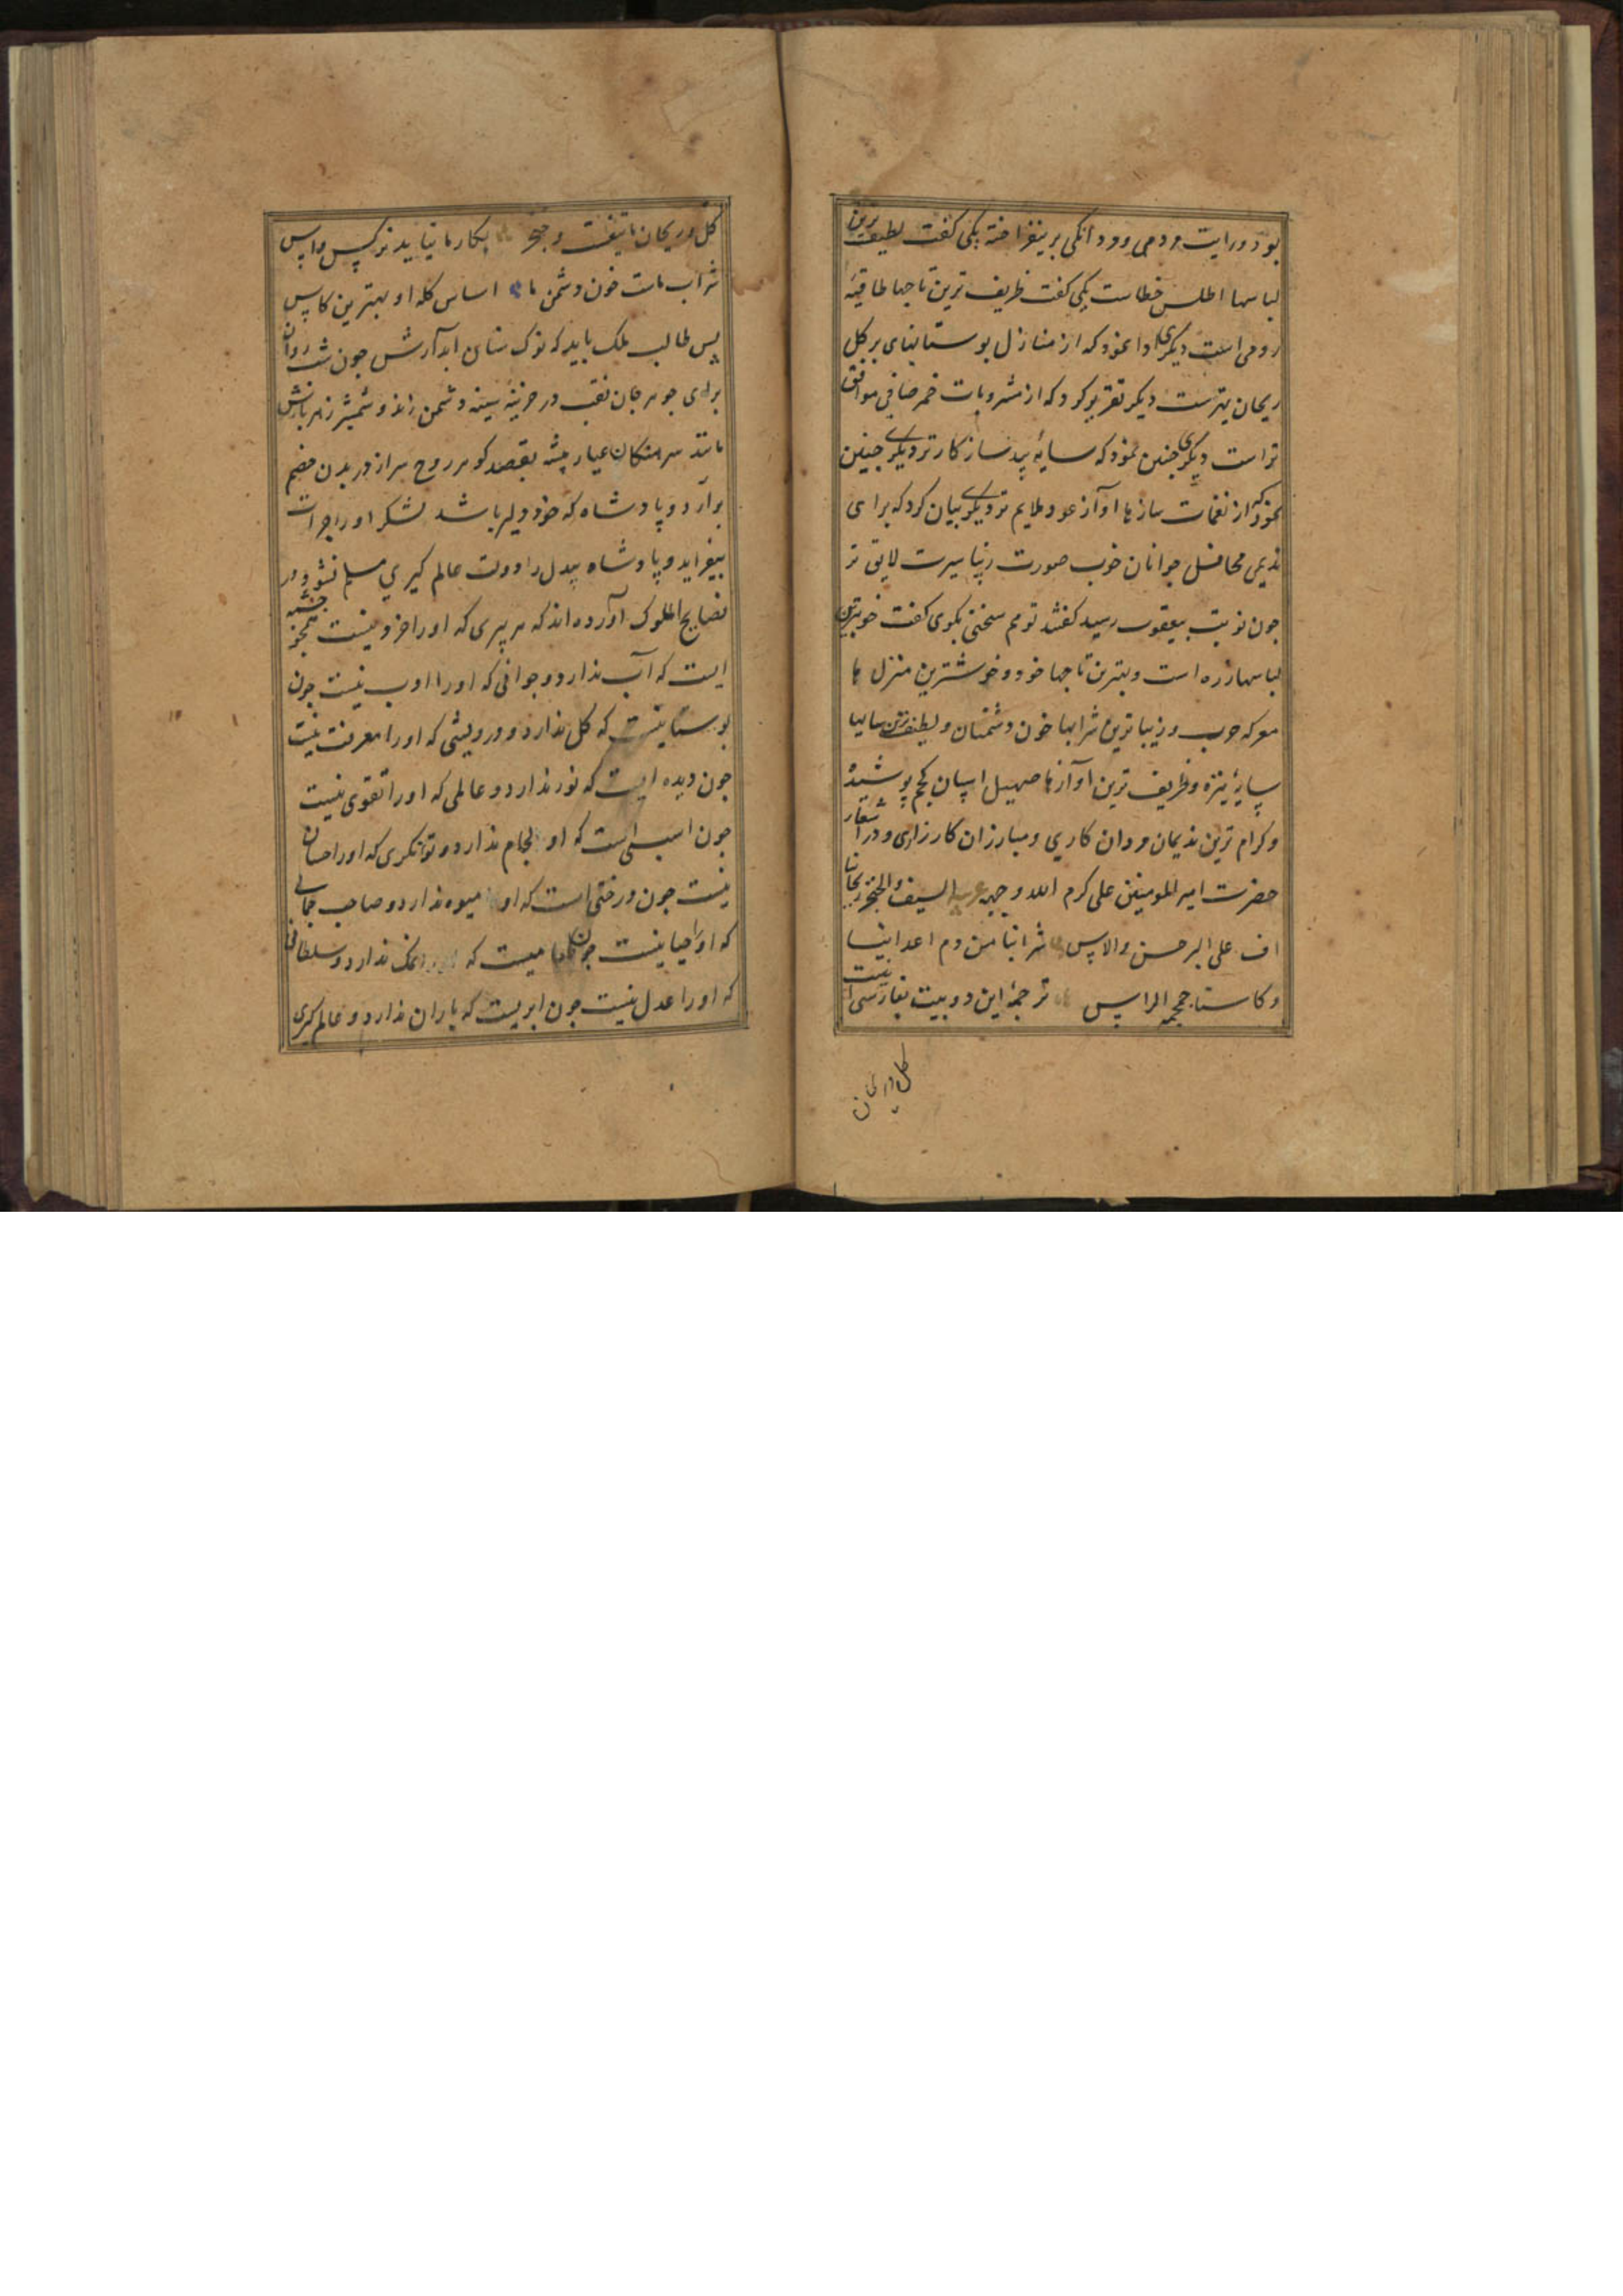 بود ورایت مردمی ومردانگی برمیفراخته یکی گفت لطیف ترین
لباسها اطلس خطاست یکی گفت ظریف ترین تاجها طاقیهٔ
رومی است دیگری وا نمود که از منازل بوستانهای پر گل
ریحان بهترست دیگر تقریر کرد که از مشروبات خمر صافی موافق
تراست دیگری چنین نمود که سایهٔ بید سازگارتر دیگری چنین
نمود که از نغمات سازها آواز عود ملایم تر دیگری بیان کرد که برای
ندیمی محافل جوانان خوب صورت زیبا سیرت لایق تر
چون نوبت بیعقوب رسید گفتند تو هم سخنی بگوی گفت خوبترین
لباسها زره است و بهترین تاجها خود و خوشترین منزل ها
معرکه حرب و زیباترین شرابها خون دشمنان و لطیف ترین سایها
سایهٔ نیزه و ظریف ترین آوازها صهیل اسپان کجم پوشیده
و کرام ترین ندیمان مردان کاری و مبارزان کارزاری و در اشعار
حضرت امیر المومنین علی کرم الله وجهه السیف والخنجر ریحاننا
اف علی النرجس والاس شرابنا من دم اعدائنا
وکاسنا جمجمه الراس ترجمهٔ این دو بیت بفارسی اینست
گل وریحان
گل وریحان ما تیغست وخنجر بکار ما نیاید نرگس واس
شراب ماست خون دشمن ما اساس کله او بهترین کاس
پس طالب ملک باید که نوک سنان ابدارش چون شب روان
برای جوهر جان نقب در خزینهٔ سینه دشمن زند و شمشیر زهربارش
مانند سرهنگان عیار پیشه بقصد گوهر روح سر از دریدن خصم
برآرد و پادشاه که خود دلیر باشد لشکر او را جرات
بیفزاید و پادشاه بیدل را دولت عالم گیری مسلم نشود و در
نصایح الملوک آورده اند که هر پیری که او را خرد نیست همچو چشمه
ایست که آب ندارد و جوانی که او را ادب نیست چون
بوستانیست که گل ندارد و درویشی که او را معرفت نیست
چون دیده ایست که نور ندارد و عالمی که او را تقوی نیست
چون اسبی است که او لجام ندارد و توانگری که او را احسان
نیست چون درختی است که او میوه ندارد و صاحب جمالی
که او را حیا نیست چون طعامیست که نمک ندارد و سلطانی
که او را عدل نیست چون ابریست که باران ندارد و عالم گیری